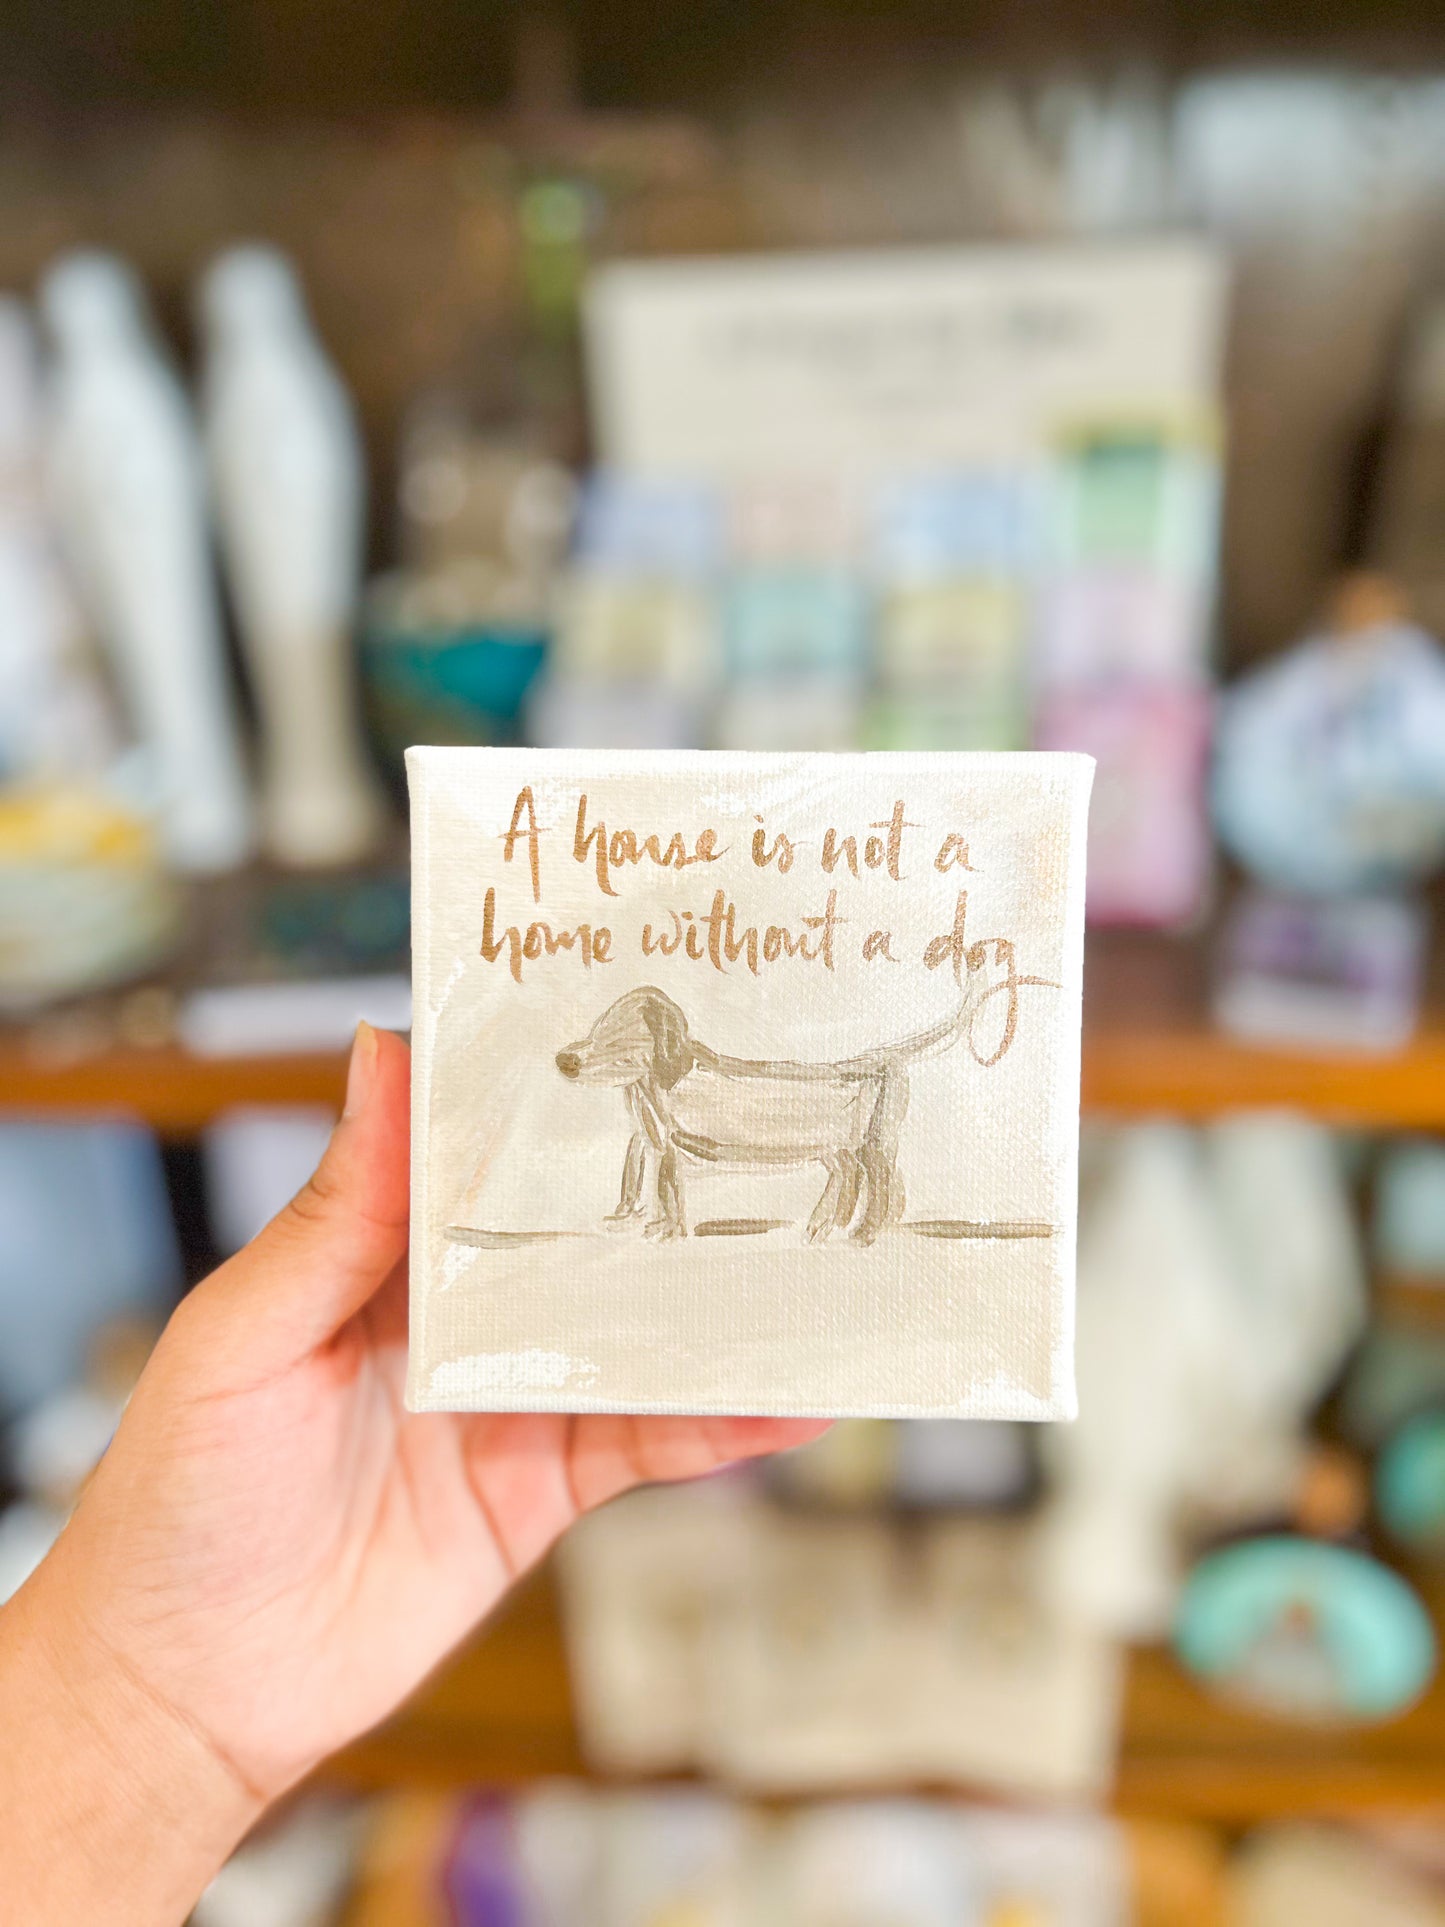 A house is not a
home without a dog